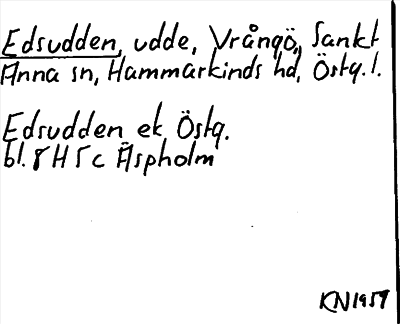 Edsudden, udde, Vrångö, Sankt
Anna sn, Hammarkinds hd, Östg. l.
Edsudden ek Östg.
bl. 8 H 5 c Aspholm
KN 1959